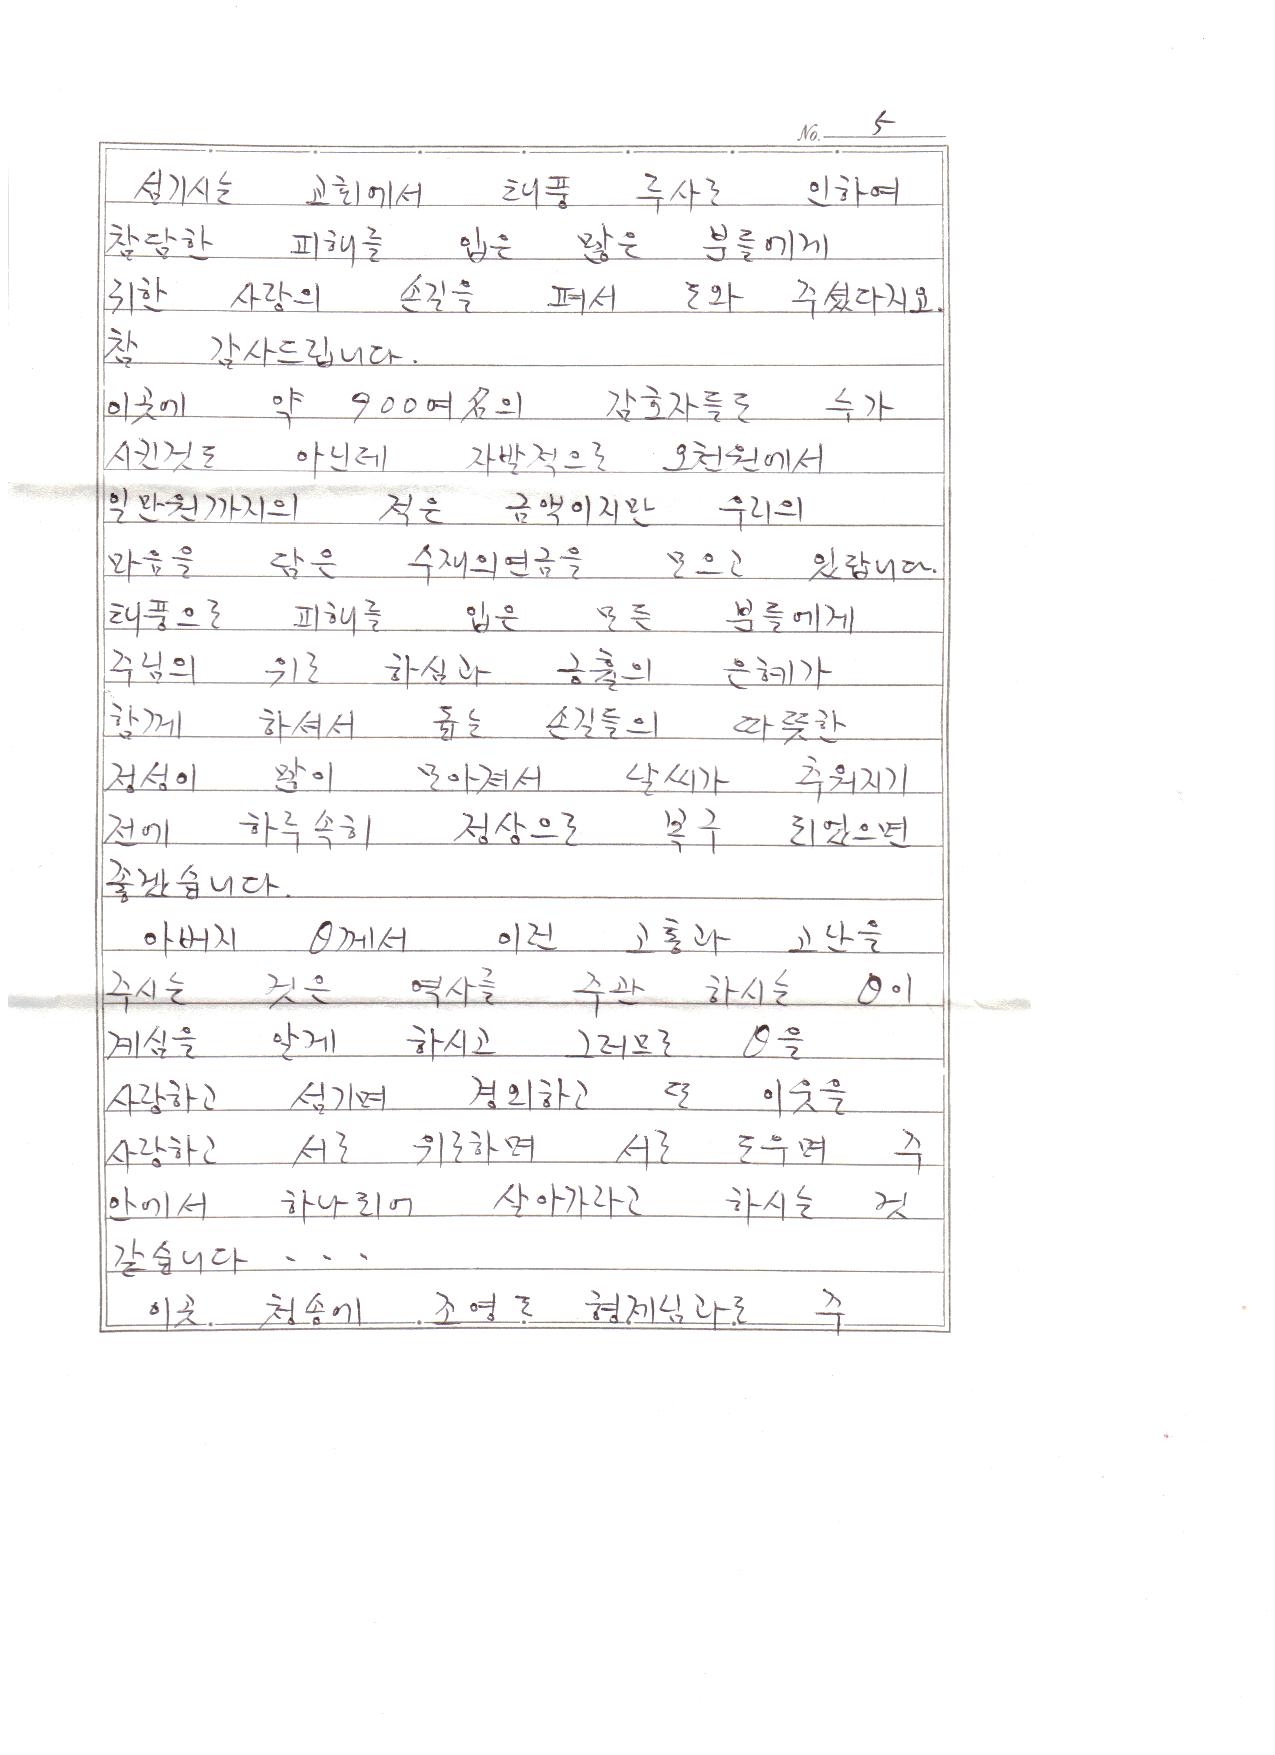 No. 5
섬기시는 교회에서 태풍 루사로 인하여
참담한 피해를 입은 많은 분들에게
귀한 사랑의 손길을 펴서 도와 주셨다지요.
참 감사드립니다.
이곳에 약 900여名의 감호자들도 누가
시킨것도 아닌데 자발적으로 오천원에서
일만원까지의 적은 금액이지만 우리의
마음을 담은 수재의연금을 모으고 있답니다.
태풍으로 피해를 입은 모든 분들에게
주님의 위로 하심과 긍휼의 은혜가
함께 하셔서 돕는 손길들의 따뜻한
정성이 많이 모아져서 날씨가 추워지기
전에 하루속히 정상으로 복구 되었으면
좋겠습니다.
아버지 θ께서 이런 고통과 고난을
주시는 것은 역사를 주관 하시는 θ이
계심을 알게 하시고 그러므로 θ을
사랑하고 섬기며 경외하고 또 이웃을
사랑하고 서로 위로하며 서로 도우며 주
안에서 하나되어 살아가라고 하시는 것
같습니다 . . .
이곳 청송에 조영도 형제님과도 주